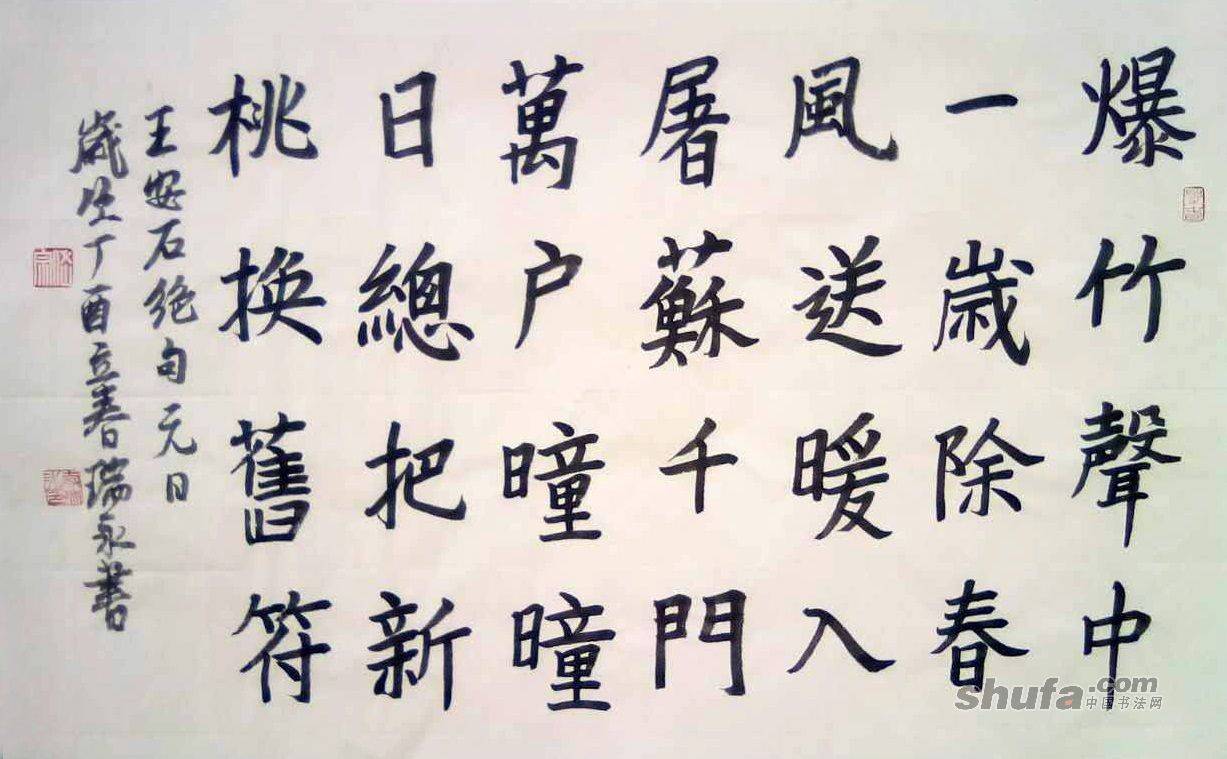 爆竹聲中
一歲除春
風送暖入
屠蘇千門
萬户曈曈
日總把新
桃換舊符
王安石絶句元日
歲在丁酉立春日瑞永書
shufa.com
中国书法网